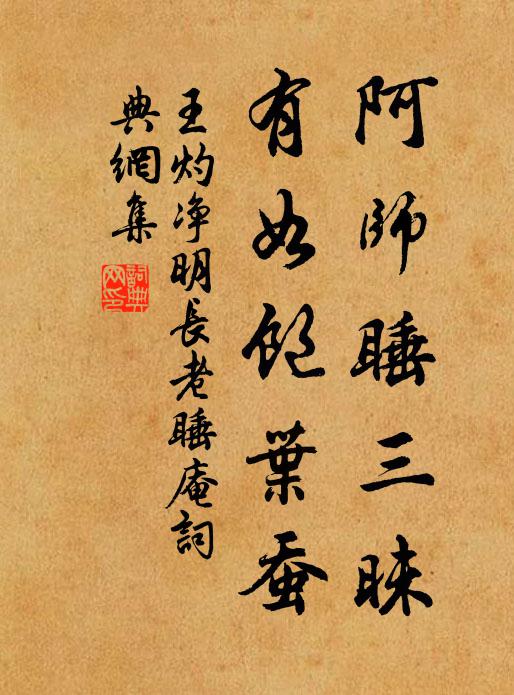 阿師睡三昧
有如飽葉蚕
王灼净明長老睡庵詞
典網集
詞典网印